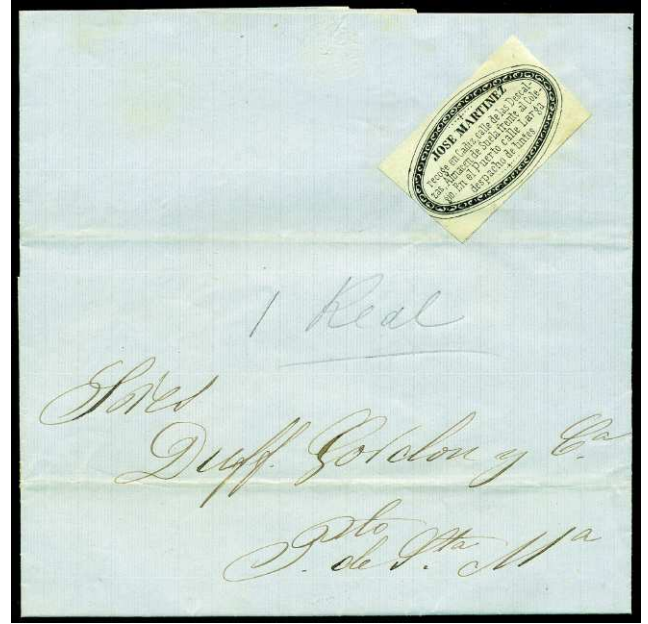 JOSE MARTINEZ
recoge en Cadiz, calle de las Descal-
zas, Almacen de Suela frente al Cole-
gio. En el Puerto Calle Larga
despacho de lintes
1 Real
Sres
Duff. Gordon y Cª
Pto de Sta Mª